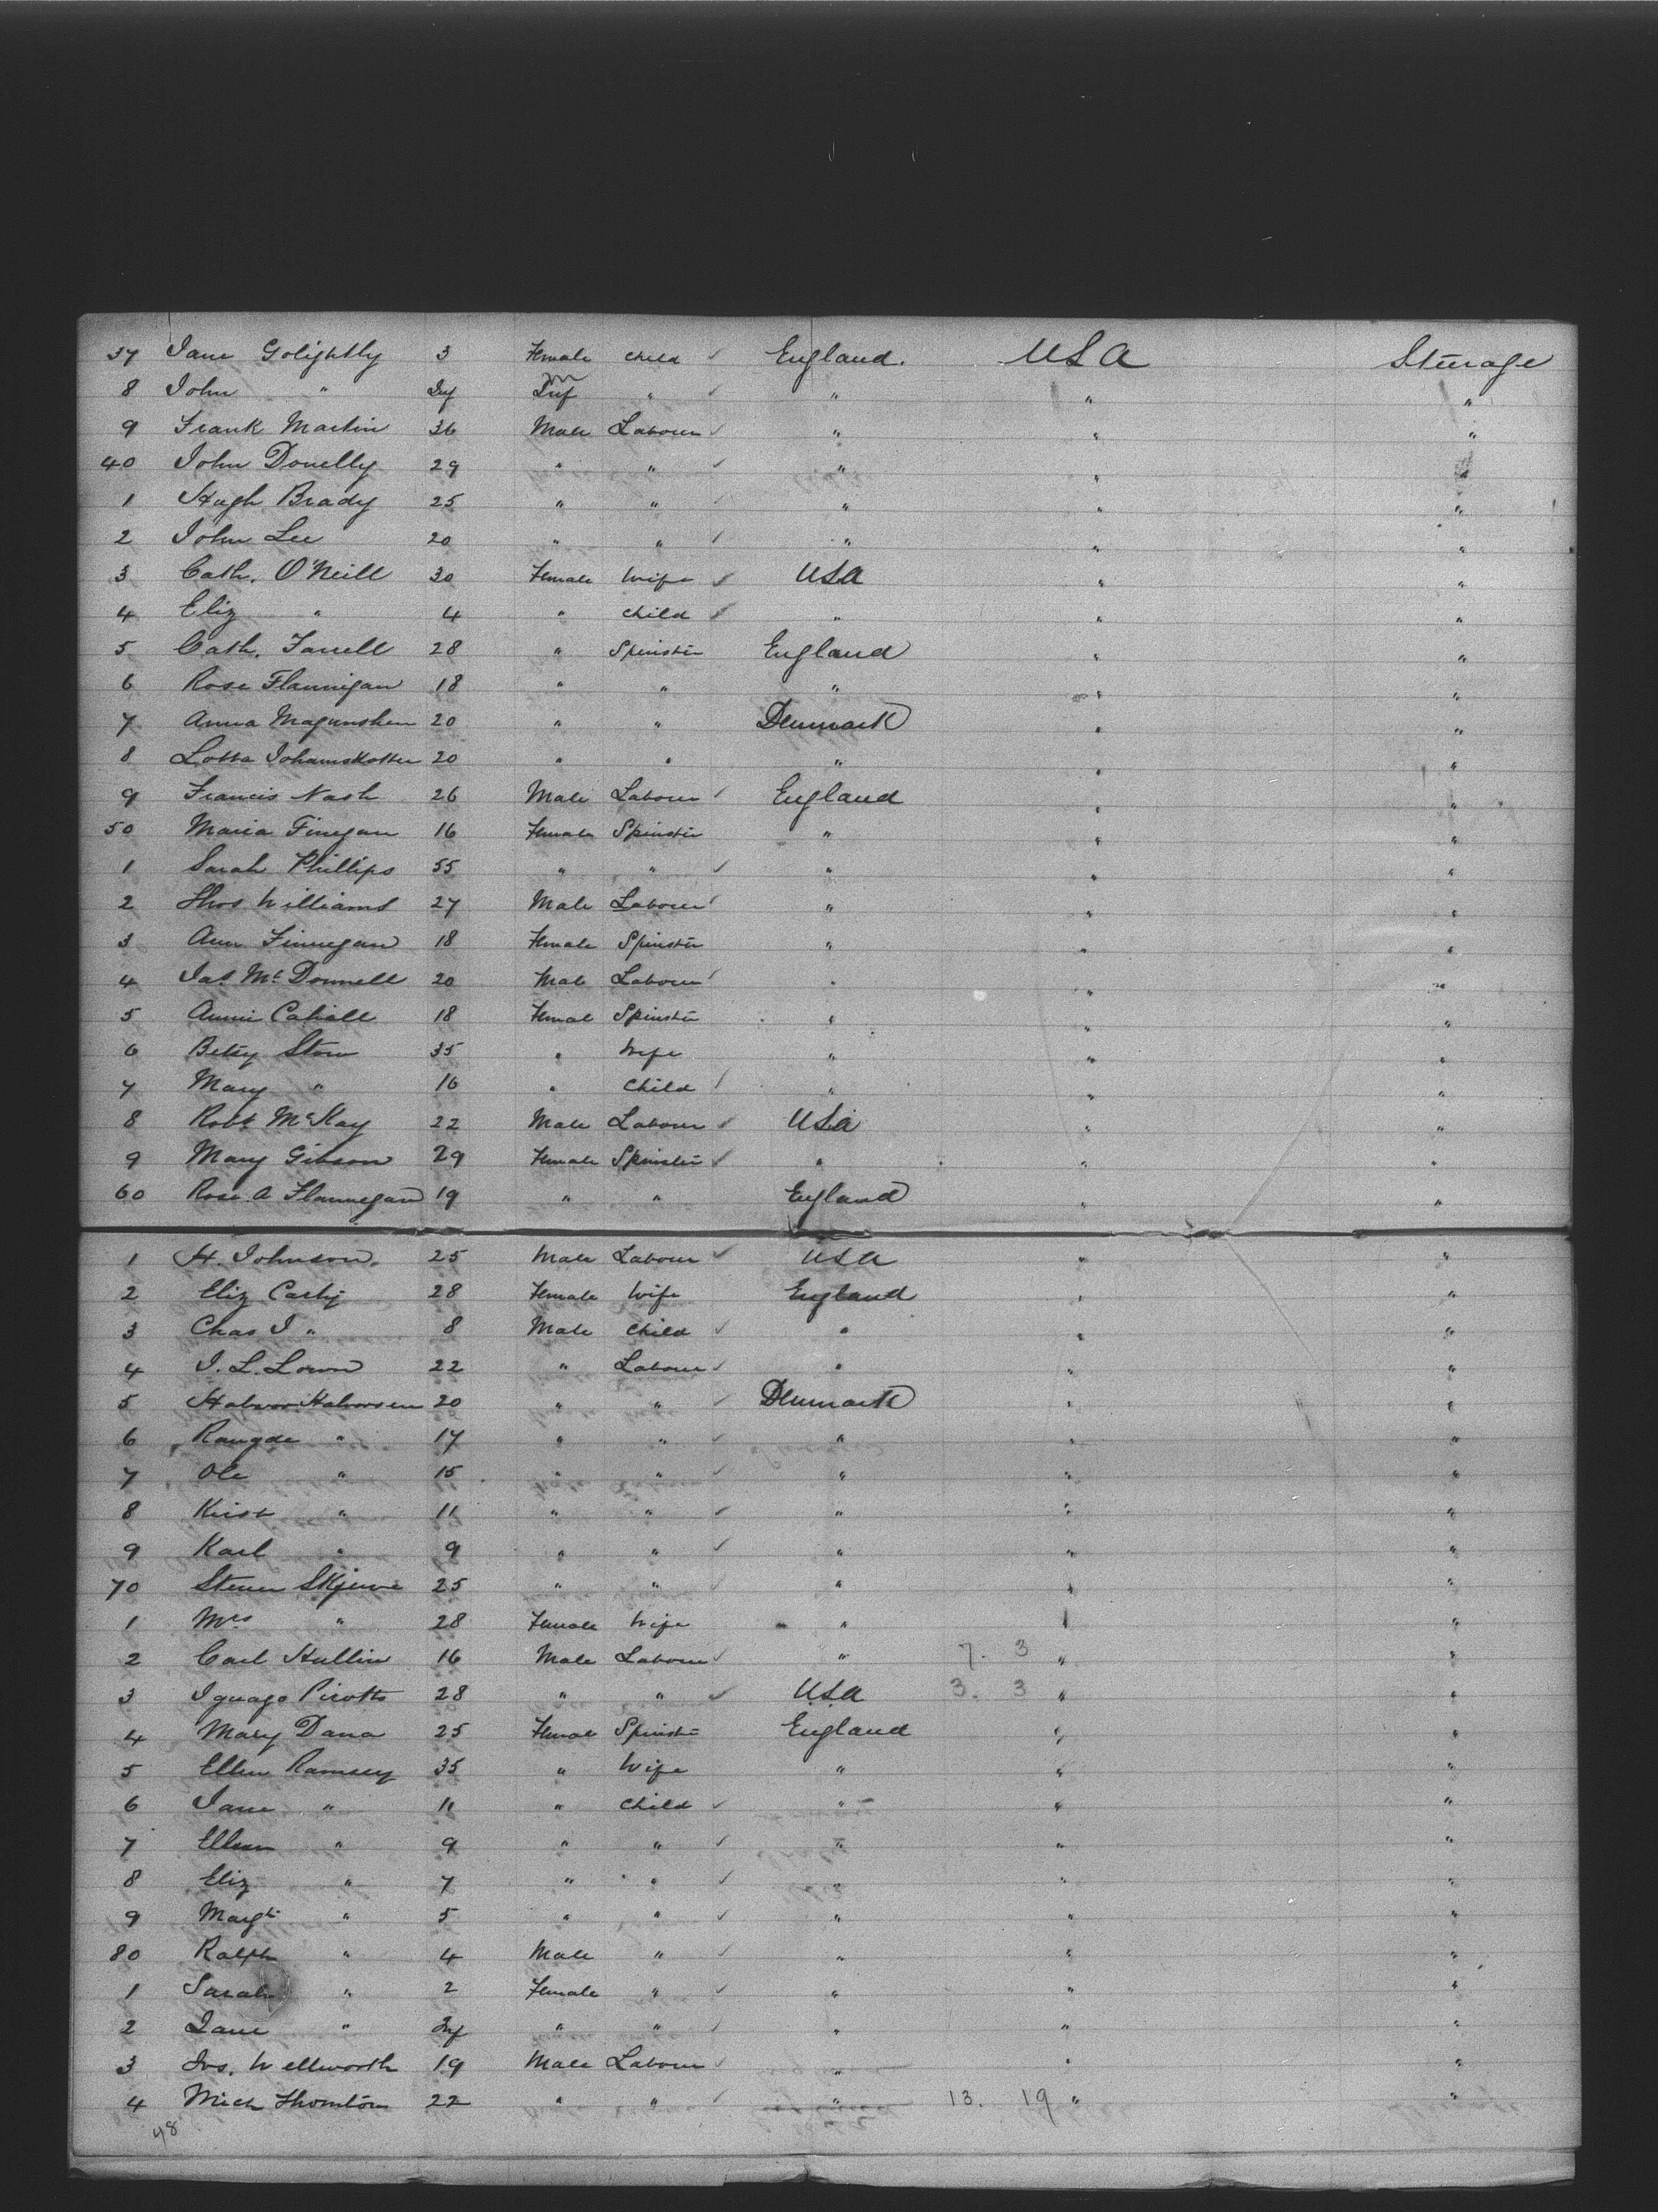 37 Jane Golightly 3 Female Child ✓ England. USA Steerage
8 John " Inf m Inf " ✓ " " "
9 Frank Martin 36 Male Labourer ✓ " " "
40 John Donelly 29 " " ✓ " " "
1 Hugh Brady 25 " " ✓ " " "
2 John Lee 20 " " ✓ " " "
3 Cath. O'Neill 30 Female Wife ✓ USA " "
4 Eliz " 4 " Child ✓ " " "
5 Cath. Farrell 28 " Spinster England " "
6 Rose Flannigan 18 " " " " "
7 Anna 20 " " Denmark " "
8 Lotta 20 " " " " "
9 Francis Nash 26 Male Labourer ✓ England " "
50 Maria Finegan 16 Female Spinster " " "
1 Sarah Phillips 55 " " ✓ " " "
2 Thos. Williams 27 Male Labourer ✓ " " "
3 Ann Finnegan 18 Female Spinster " " "
4 Jas. McDonnell 20 Male Labourer ✓ " " "
5 Annie Cahall 18 Femal Spinster " " "
6 Betsy Stow 35 " Wife " " "
7 Mary " 16 " Child ✓ " " "
8 Robt McKay 22 Male Labourer ✓ USA " "
9 Mary Gibson 29 Female Spinster ✓ " " "
60 Rose. A Flannegan 19 " " England " "
1 H. Johnson. 25 Male Labour ✓ USA " "
2 Eliz 28 Female Wife England " "
3 Chas J " 8 Male Child ✓ " " "
4 J. L. Lown 22 " Labourer ✓ " " "
5 Halvor Halvorsen 20 " " ✓ Denmark " "
6 " 17 " " ✓ " " "
7 Ole " 15 " " ✓ " " "
8 Krist " 11 " " ✓ " " "
9 Karl " 9 " " ✓ " " "
70 25 " " ✓ " " "
1 Mrs " 28 Female Wife " " "
2 Carl Hullin 16 Male Labourer ✓ " 7. 3 " "
3 28 " " ✓ USA 3. 3 " "
4 Mary Dana 25 Female Spinster England " "
5 Ellen Ramsey 35 " Wife " " "
6 Jane " 11 " Child ✓ " " "
7 Ellen " 9 " " ✓ " " "
8 Eliz " 7 " " ✓ " " "
9 Margt " 5 " " ✓ " " "
80 Ralph " 4 Male " ✓ " " "
1 Sarah " 2 Female " ✓ " " "
2 Jane " Inf " " ✓ " " "
3 Jos. Wellworth 19 Male Labourer ✓ " " "
4 Mich Thornton 22 " " ✓ " 13. 19 " "
48